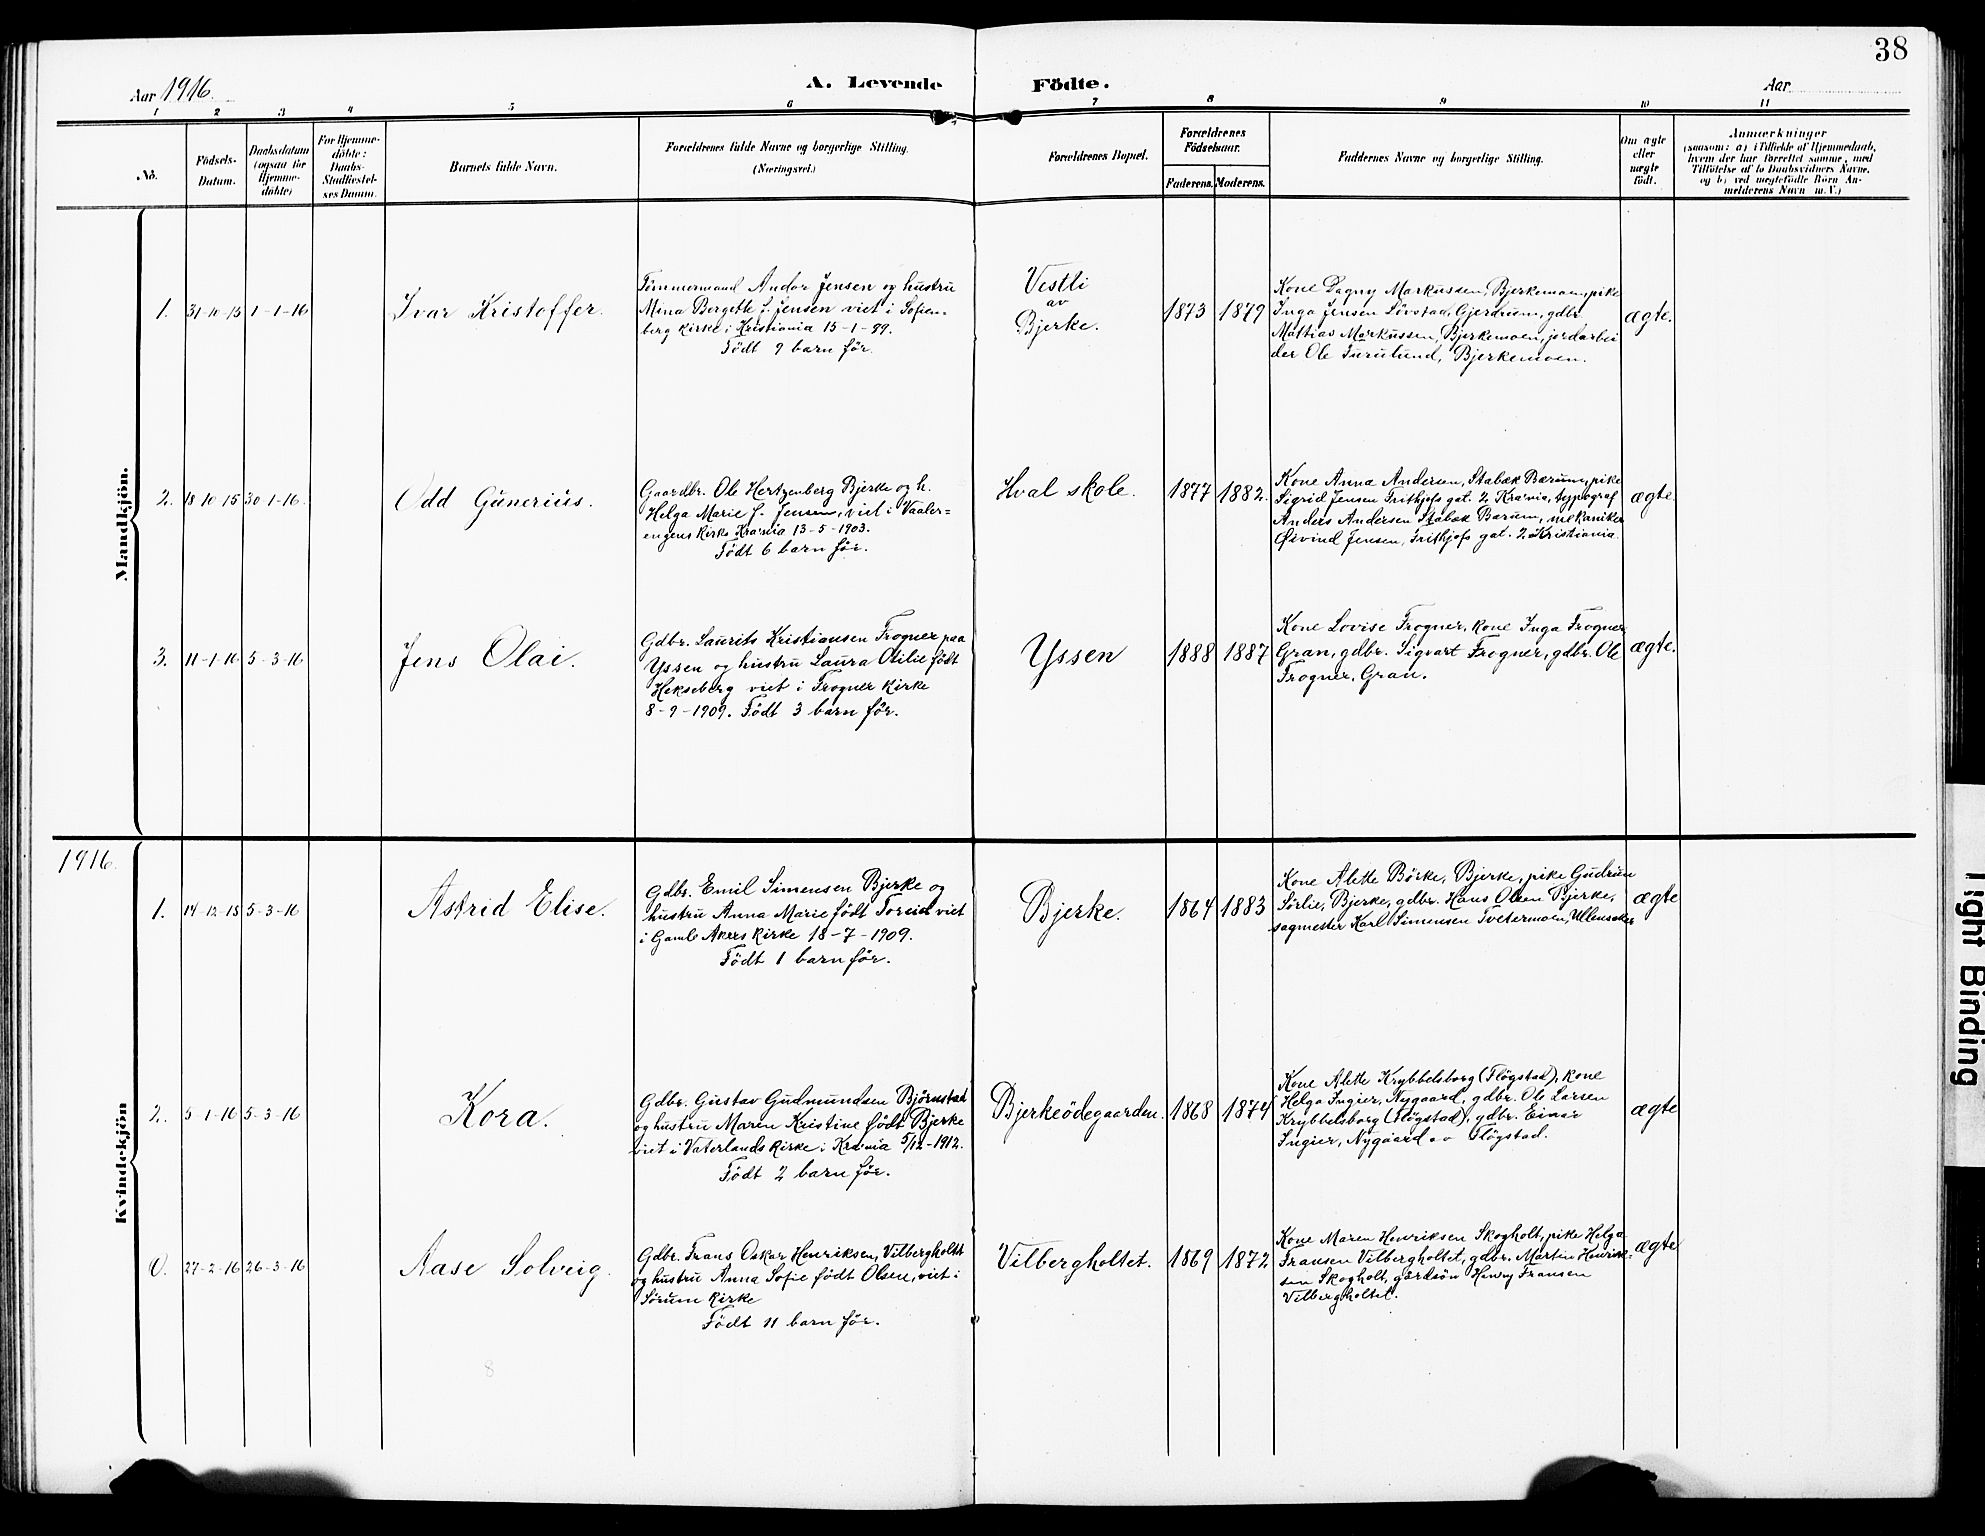 38
Aar 1916.
A. Levende Födte.
Aar
1 2 3 4 5 6 7 8 9 10 11
No.
Födsels-
Datum.
Daabsdatum
(ogsaa for
Hjemme-
döbte)
For Hjemme-
döbte:
Daabs-
Stadfæstel-
ses Datum.
Barnets fulde Navn.
Forældrenes fulde Navne og borgerlige Stilling.
(Næringsvei.)
Forældrenes Bopæl.
Forældrenes
Födselsaar.
Faderens. Moderens.
Faddernes Navne og borgerlige Stilling.
Om ægte
eller
uægte
födt.
Anmærkninger
(saasom: a) i Tilfælde af Hjemmedaab,
hvem der har forrettet samme, med
Tilföielse af to Daabsvidners Navne,
og b) ved uægtefödte Börn An-
melderens Navn m. V.)
Mandkjön.
1.
31-10-15
1-1-16
Ivar Kristoffer.
Tömmermand Andor Jensen og hustru
Mina Bergette f. Jensen viet i Sofien-
berg kirke i Kristiania 15-1-99.
Födt 9 barn för.
Vestli
av
Bjerke.
1873
1879
Kone Dagny Markussen, Bjerkemoen, pike
Inga Jensen Lövstad, Gjerdrum, gdbr.
Mattias Markussen, Bjerkemoen, jordarbei
der Ole Furulund, Bjerkemoen.
ægte.
2.
18-10-15
30-1-16.
Odd Gunerius.
Gaardbr. Ole Hertzenberg Bjerke og h.
Helga Marie f. Jensen, viet i Vaaler=
engens kirke Kra.nia 13-5-1903.
Födt 6 barn för.
Hval skole.
1877
1882.
Kone Anna Andersen, Stabæk Bærum, pike
Sigrid Jensen Frithjofs gat. 2 Kra.nia, typograf
Anders Andersen Stabæk Bærum, mekaniker
Øivind Jensen, Frithjofs gat. 2 Kristiania.
ægte
3.
11-1-16
5-3-16
Jens Olai.
Gdbr. Laurits Kristiansen Frogner paa
Yssen og hustru Laura Otilie födt
Hekseberg viet i Frogner kirke
8-9-1909. Födt 3 barn för.
Yssen
1888
1887
Kone Lovise Frogner, kone Inga Frogner
Gran, gdbr. Sigvart Frogner, gdbr. Ole
Frogner, Gran.
ægte.
1916.
Kvindekjön
1.
14-12-15
5-3-16
Astrid Elise.
Gdbr. Emil Simensen Bjerke og
hustru Anna Marie födt Toreid viet
i Gamle Akers kirke 18-7-1909.
Födt 1 barn för.
Bjerke.
1864
1883
Kone Alette Börke, Bjerke, pike Gudrun
Sörlie, Bjerke, gdbr. Hans Olsen Bjerke,
sagmester Karl Simensen Tvetermoen, Ullensaker
ægte
2.
5-1-16
5-3-16
Kora.
Gdbr. Gustav Gudmundsen Björnstad
og hustru Maren Kristine födt Bjerke
viet i Vaterlands kirke i Kra.nia 5/12-1912.
Födt 2 barn för.
Bjerkeödegaarden.
1868
1874
Kone Alette Krybbelsborg (Flögstad), kone
Helga Ingier, Nygaard, gdbr. Ole Larsen
Krybbelsborg (Flögstad), gdbr. Einar
Ingier, Nygaard av Flögstad.
ægte
27-2-16
26-3-16
Aase Solveig.
Gdbr. Frans Oskar Henriksen, Vilbergholtt
og hustru Anna Sofie födt Olsen, viet i
Sörum kirke
Födt 11 barn för.
Vilbergholtet.
1869
1872
Kone Maren Henriksen Skogholt, pike Helga
Fransen Vilbergholtet, gdbr. Martin Henrik-
sen Skogholt, gardsön Henry Fransen
Vilbergholtet.
ægte
8
Tight Binding